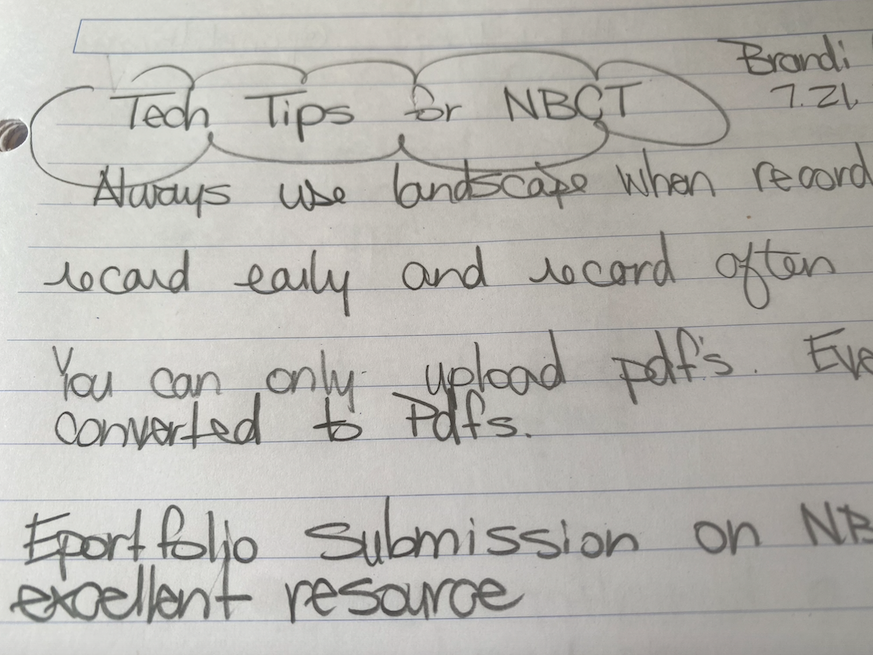 Tech Tips for NBCT
Brandi
7.21
Always use landscape when record
record early and record often
You can only upload pdf's. Eve
converted to Pdfs.
Eportfolio Submission on NB
excellent resource